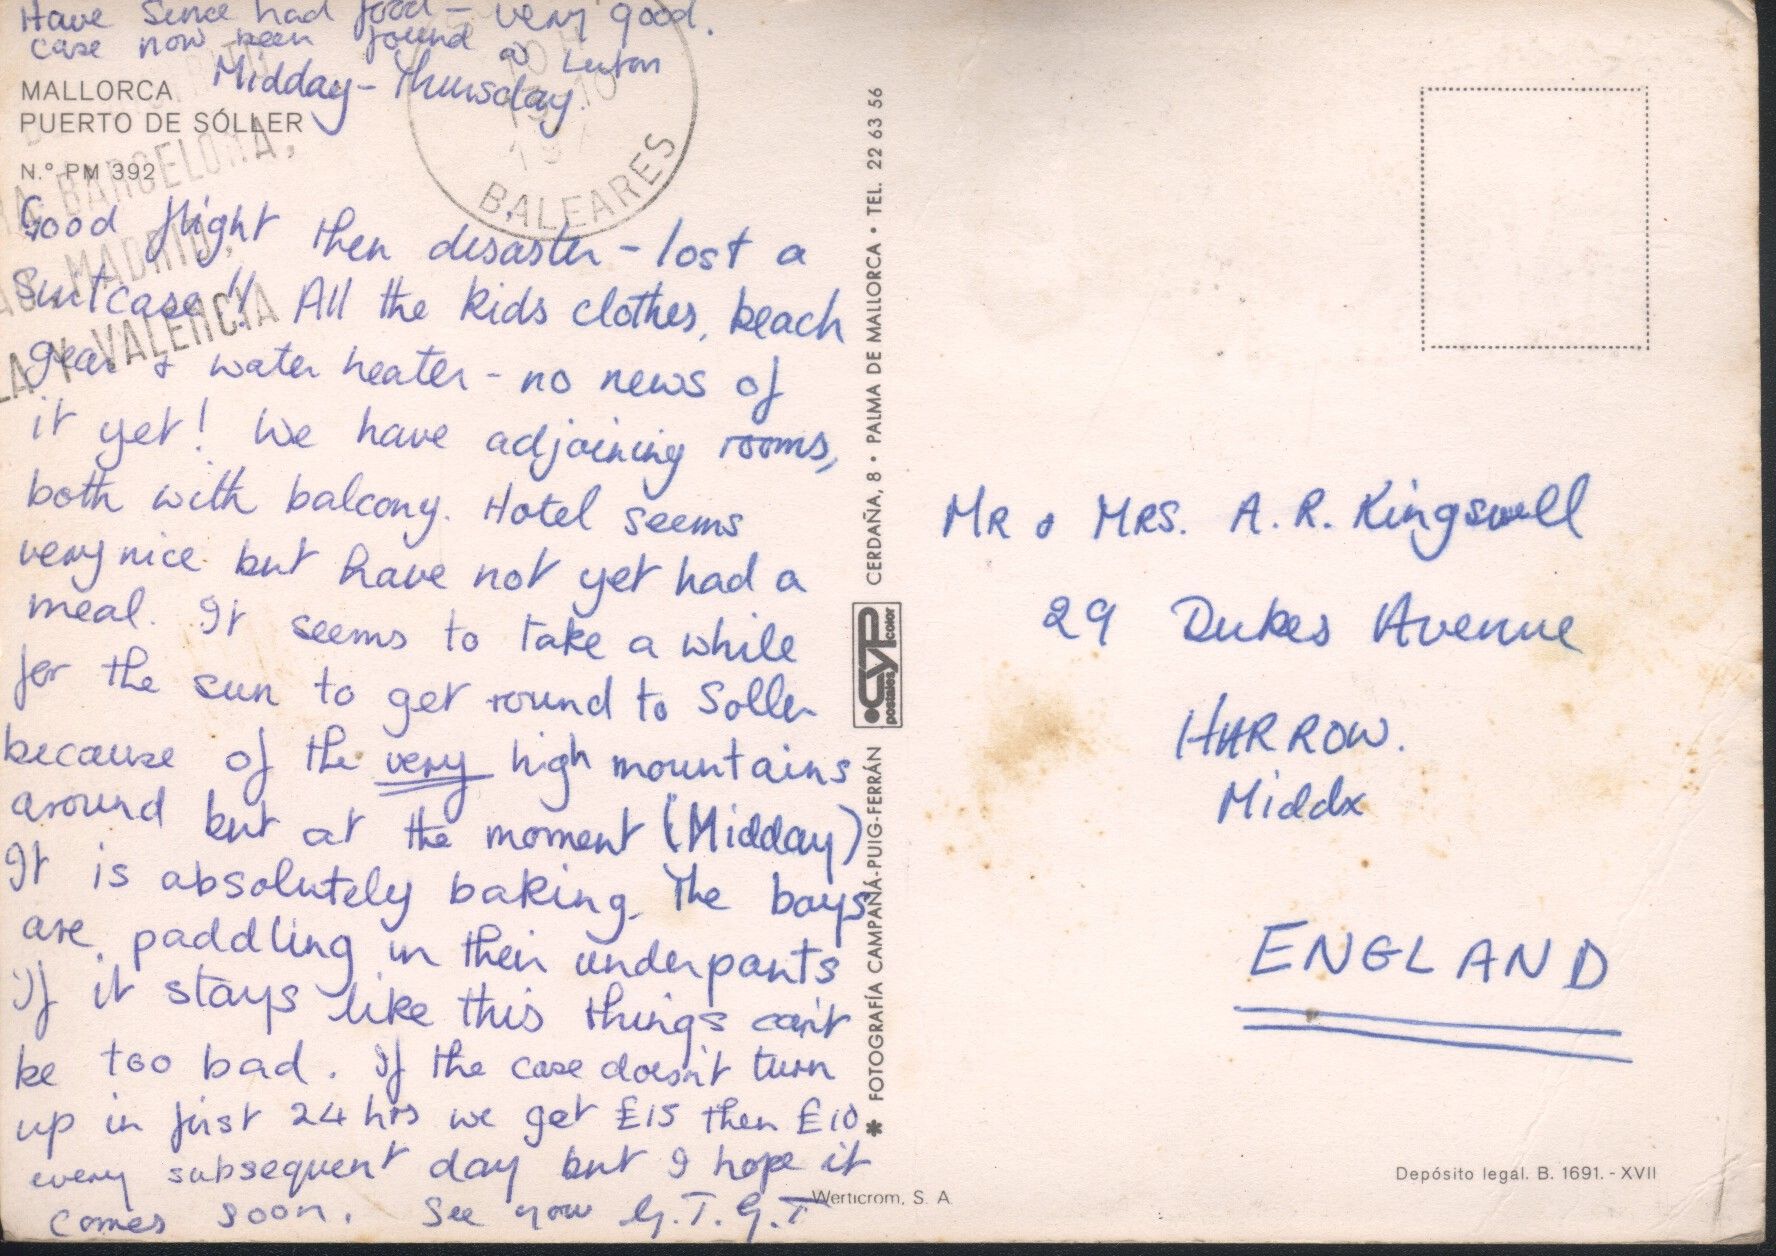 Have since had food - very good.
case now been found @ Luton
Midday - Thursday.
MALLORCA
PUERTO DE SÓLLER
N.° PM 392
BALEARES
BARCELONA,
MADRID,
LA Y VALENCIA
Good flight then disaster - lost a
Suitcase!! All the kids clothes, beach
gear & water heater - no news of
it yet! We have adjoining rooms,
both with balcony. Hotel seems
very nice but have not yet had a
meal. It seems to take a while
for the sun to get round to Soller
because of the very high mountains
around but at the moment (Midday)
It is absolutely baking. The boys
are paddling in their underpants
If it stays like this things can't
be too bad. If the case doesn't turn
up in first 24 hrs we get £15 then £10
every subsequent day but I hope it
comes soon. See you G.T.G.T
* FOTOGRAFÍA CAMPAÑÁ-PUIG-FERRÁN
CYP
postales color
CERDAÑA, 8 • PALMA DE MALLORCA • TEL. 22 63 56
Werticrom, S. A.
Mr & Mrs. A. R. Kingswell
29 Dukes Avenue
HARROW.
Middx
ENGLAND
Depósito legal. B. 1691. - XVII